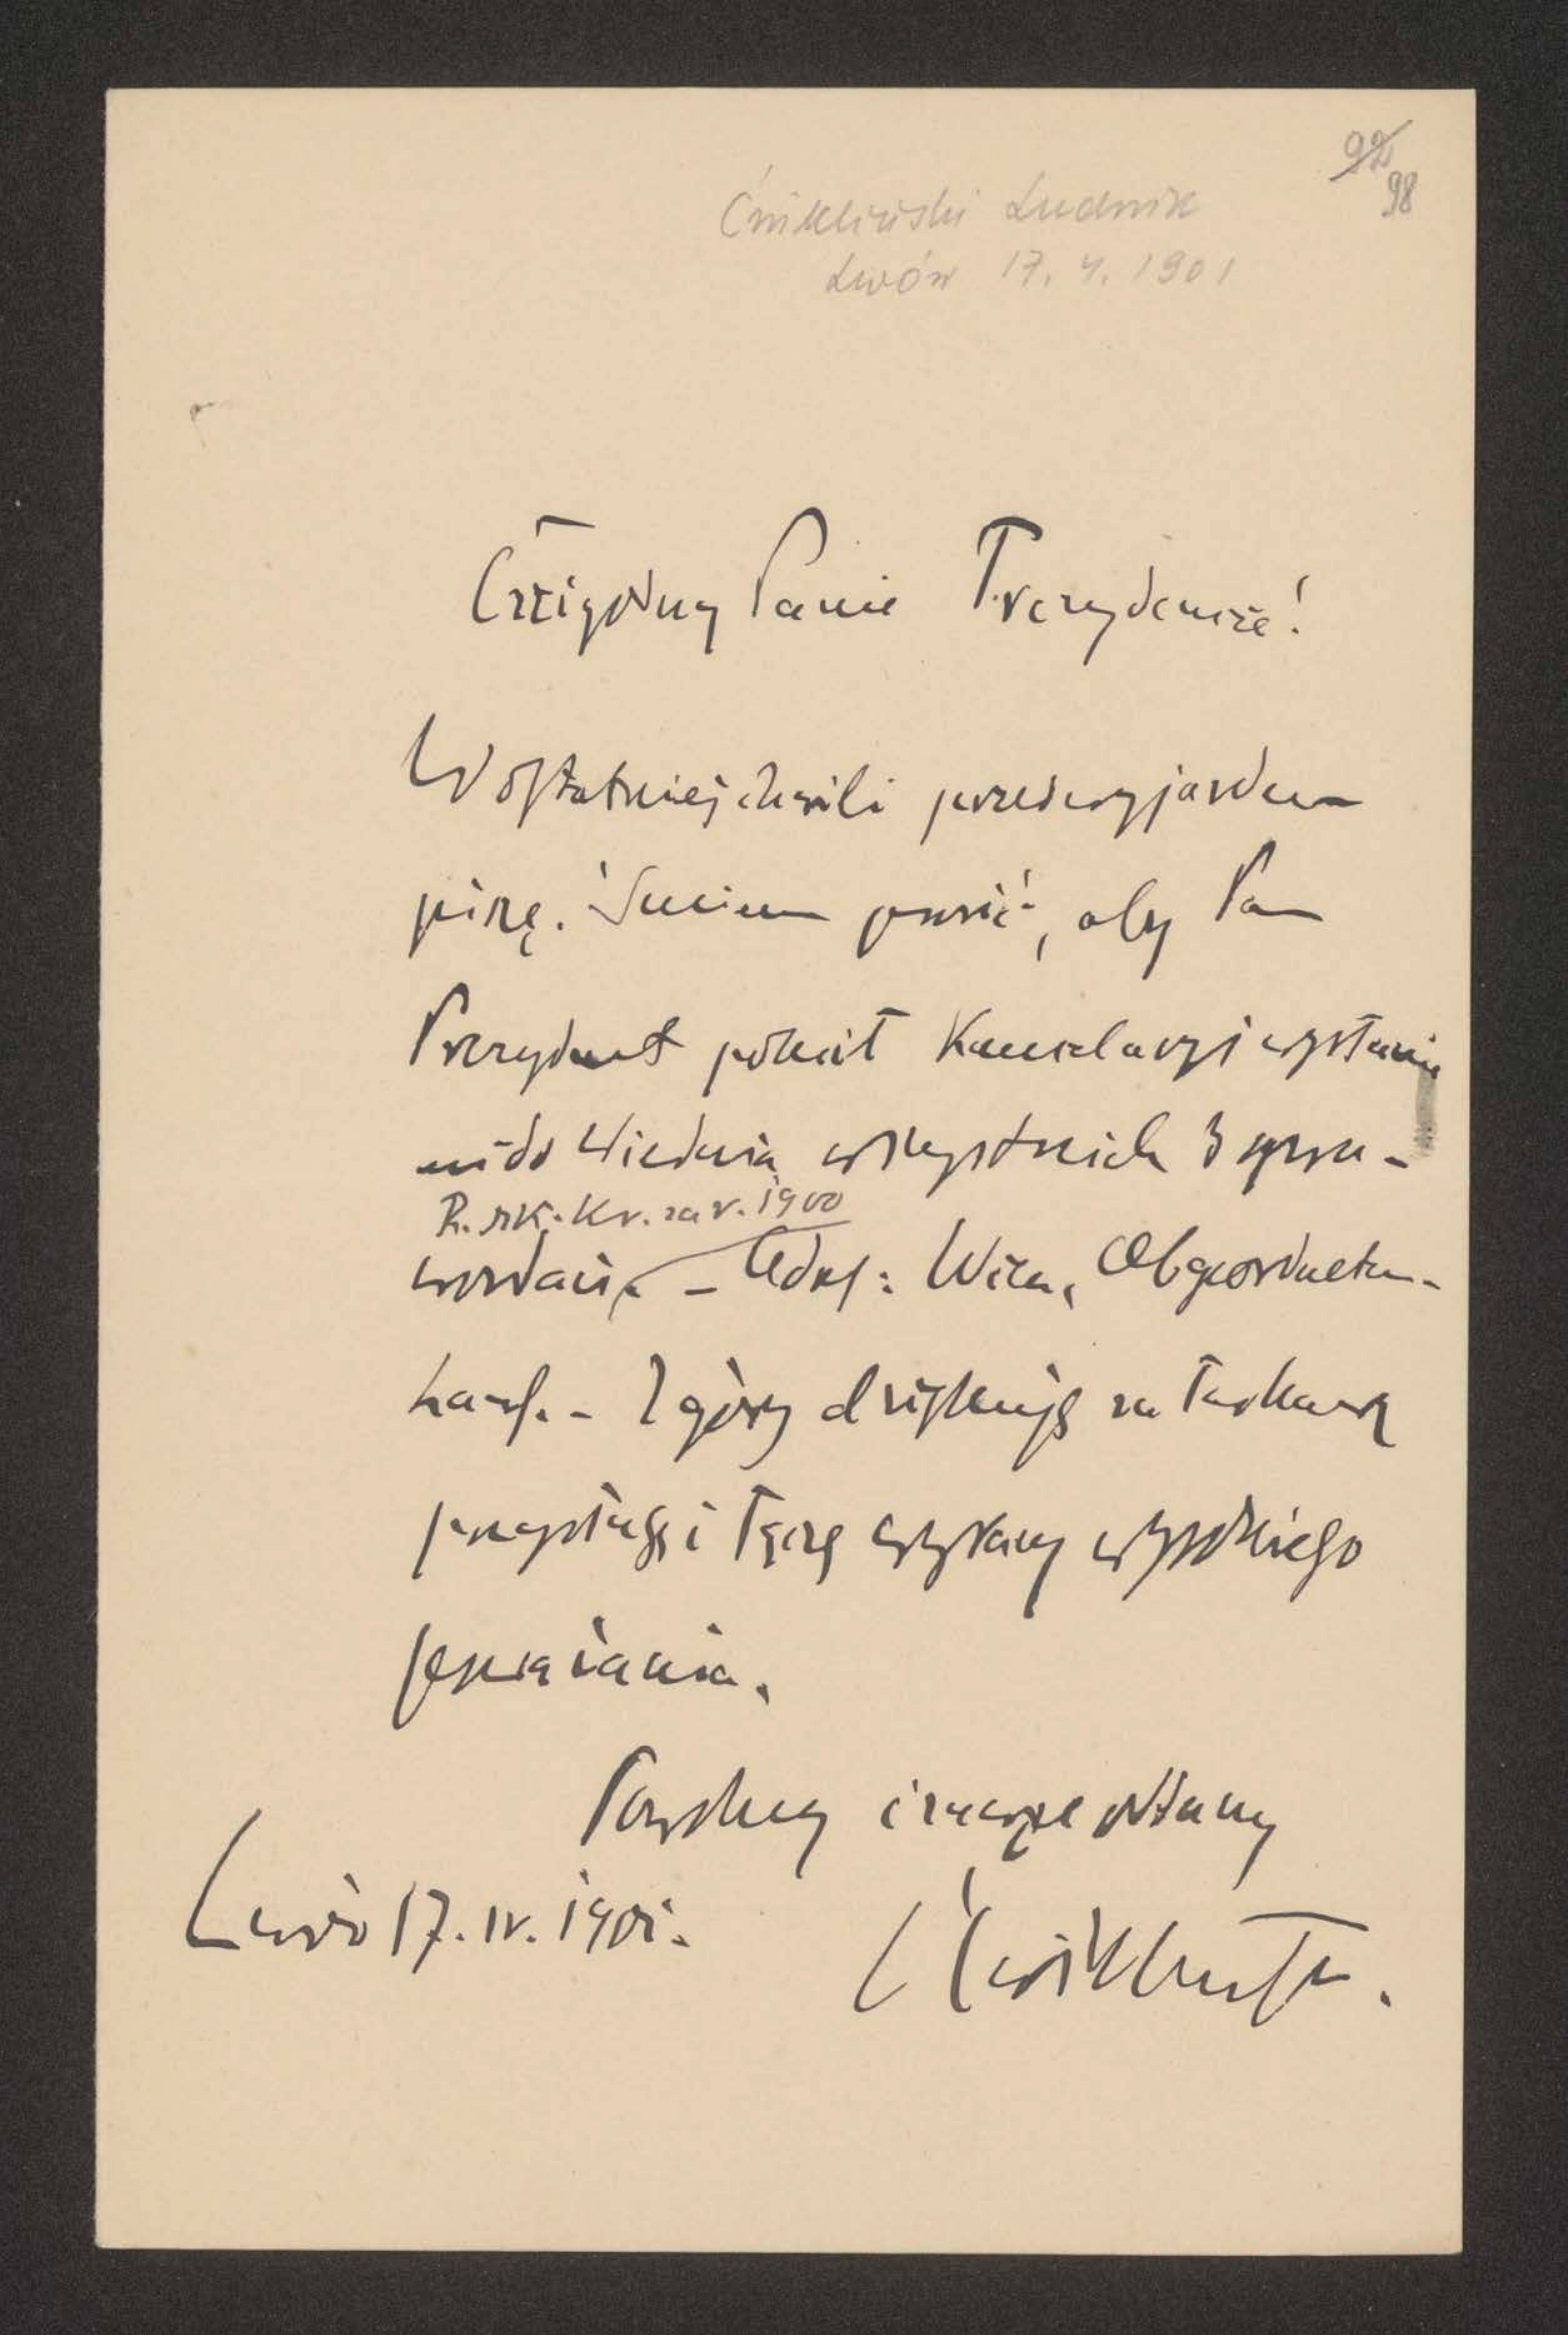 92
98
Ćwikliński Ludwik
Lwów 17. 4. 1901
Czcigodny Panie Prezydencie!
W ostatniej chwili przed wyjazdem
piszę. Śmiem prosić, aby Pan
Prezydent polecił Kancelaryi wysłanie
mi do Wiednia wszystkich 3 spra-
R. szk. Kr. za r. 1900
wozdań. – Adres: Wien, Abgeordneten-
haus. – Z góry dziękuję za łaskawą
przysługę i łączę wyrazy wysokiego
poważania.
Powolny i
Lwów 17. IV. 1901.
Ćwikliński.